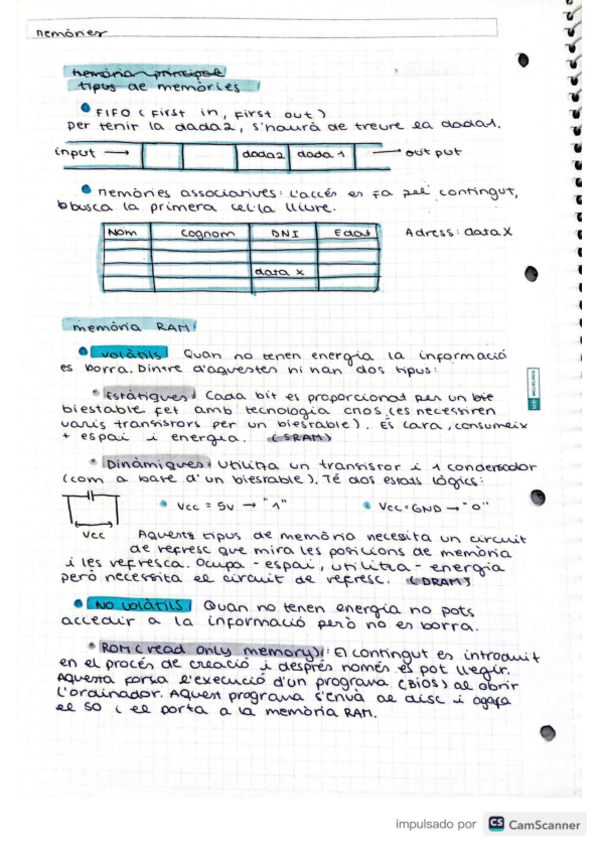 memòries
memòria principal
tipus de memòries
FIFO (First in, First out)
per tenir la dada2, s'haurà de treure la dada1.
input → dada2 dada 1 → out put
memòries associatives: l'accés es fa pel contingut,
busca la primera cel·la lliure.
Nom Cognom DNI Edat Adress: data X
data x
memòria RAM:
volàtils Quan no tenen energia la informació
es borra. Dintre d'aquestes hi han dos tipus:
Estàtiques: Cada bit es proporcional per un bie
biestable fet amb tecnologia cmos (es necessiren
varis transistors per un biesrable). És cara, consumeix
+ espai i energia. (SRAM)
Dinàmiques: Utilitza un transistor i 1 condensador
(com a base d'un biesrable). Té dos estats lògics:
Vcc = 5v → "1" Vcc = GND → "0"
Vcc
Aquests tipus de memòria necesita un circuit
de refresc que mira les posicions de memòria
i les vefresca. Ocupa - espai, utilitza - energia
però necessita el circuit de refresc. (DRAM)
No volàtils: Quan no tenen energia no pots
accedir a la informació però no es borra.
ROM (read only memory): El contingut es introduit
en el procés de creació i després només es pot llegir.
Aquesta força l'execució d'un programa (BIOS) al obrir
l'ordinador. Aquest programa s'envà al disc i agafa
el SO i el porta a la memòria RAM.
impulsado por CS CamScanner